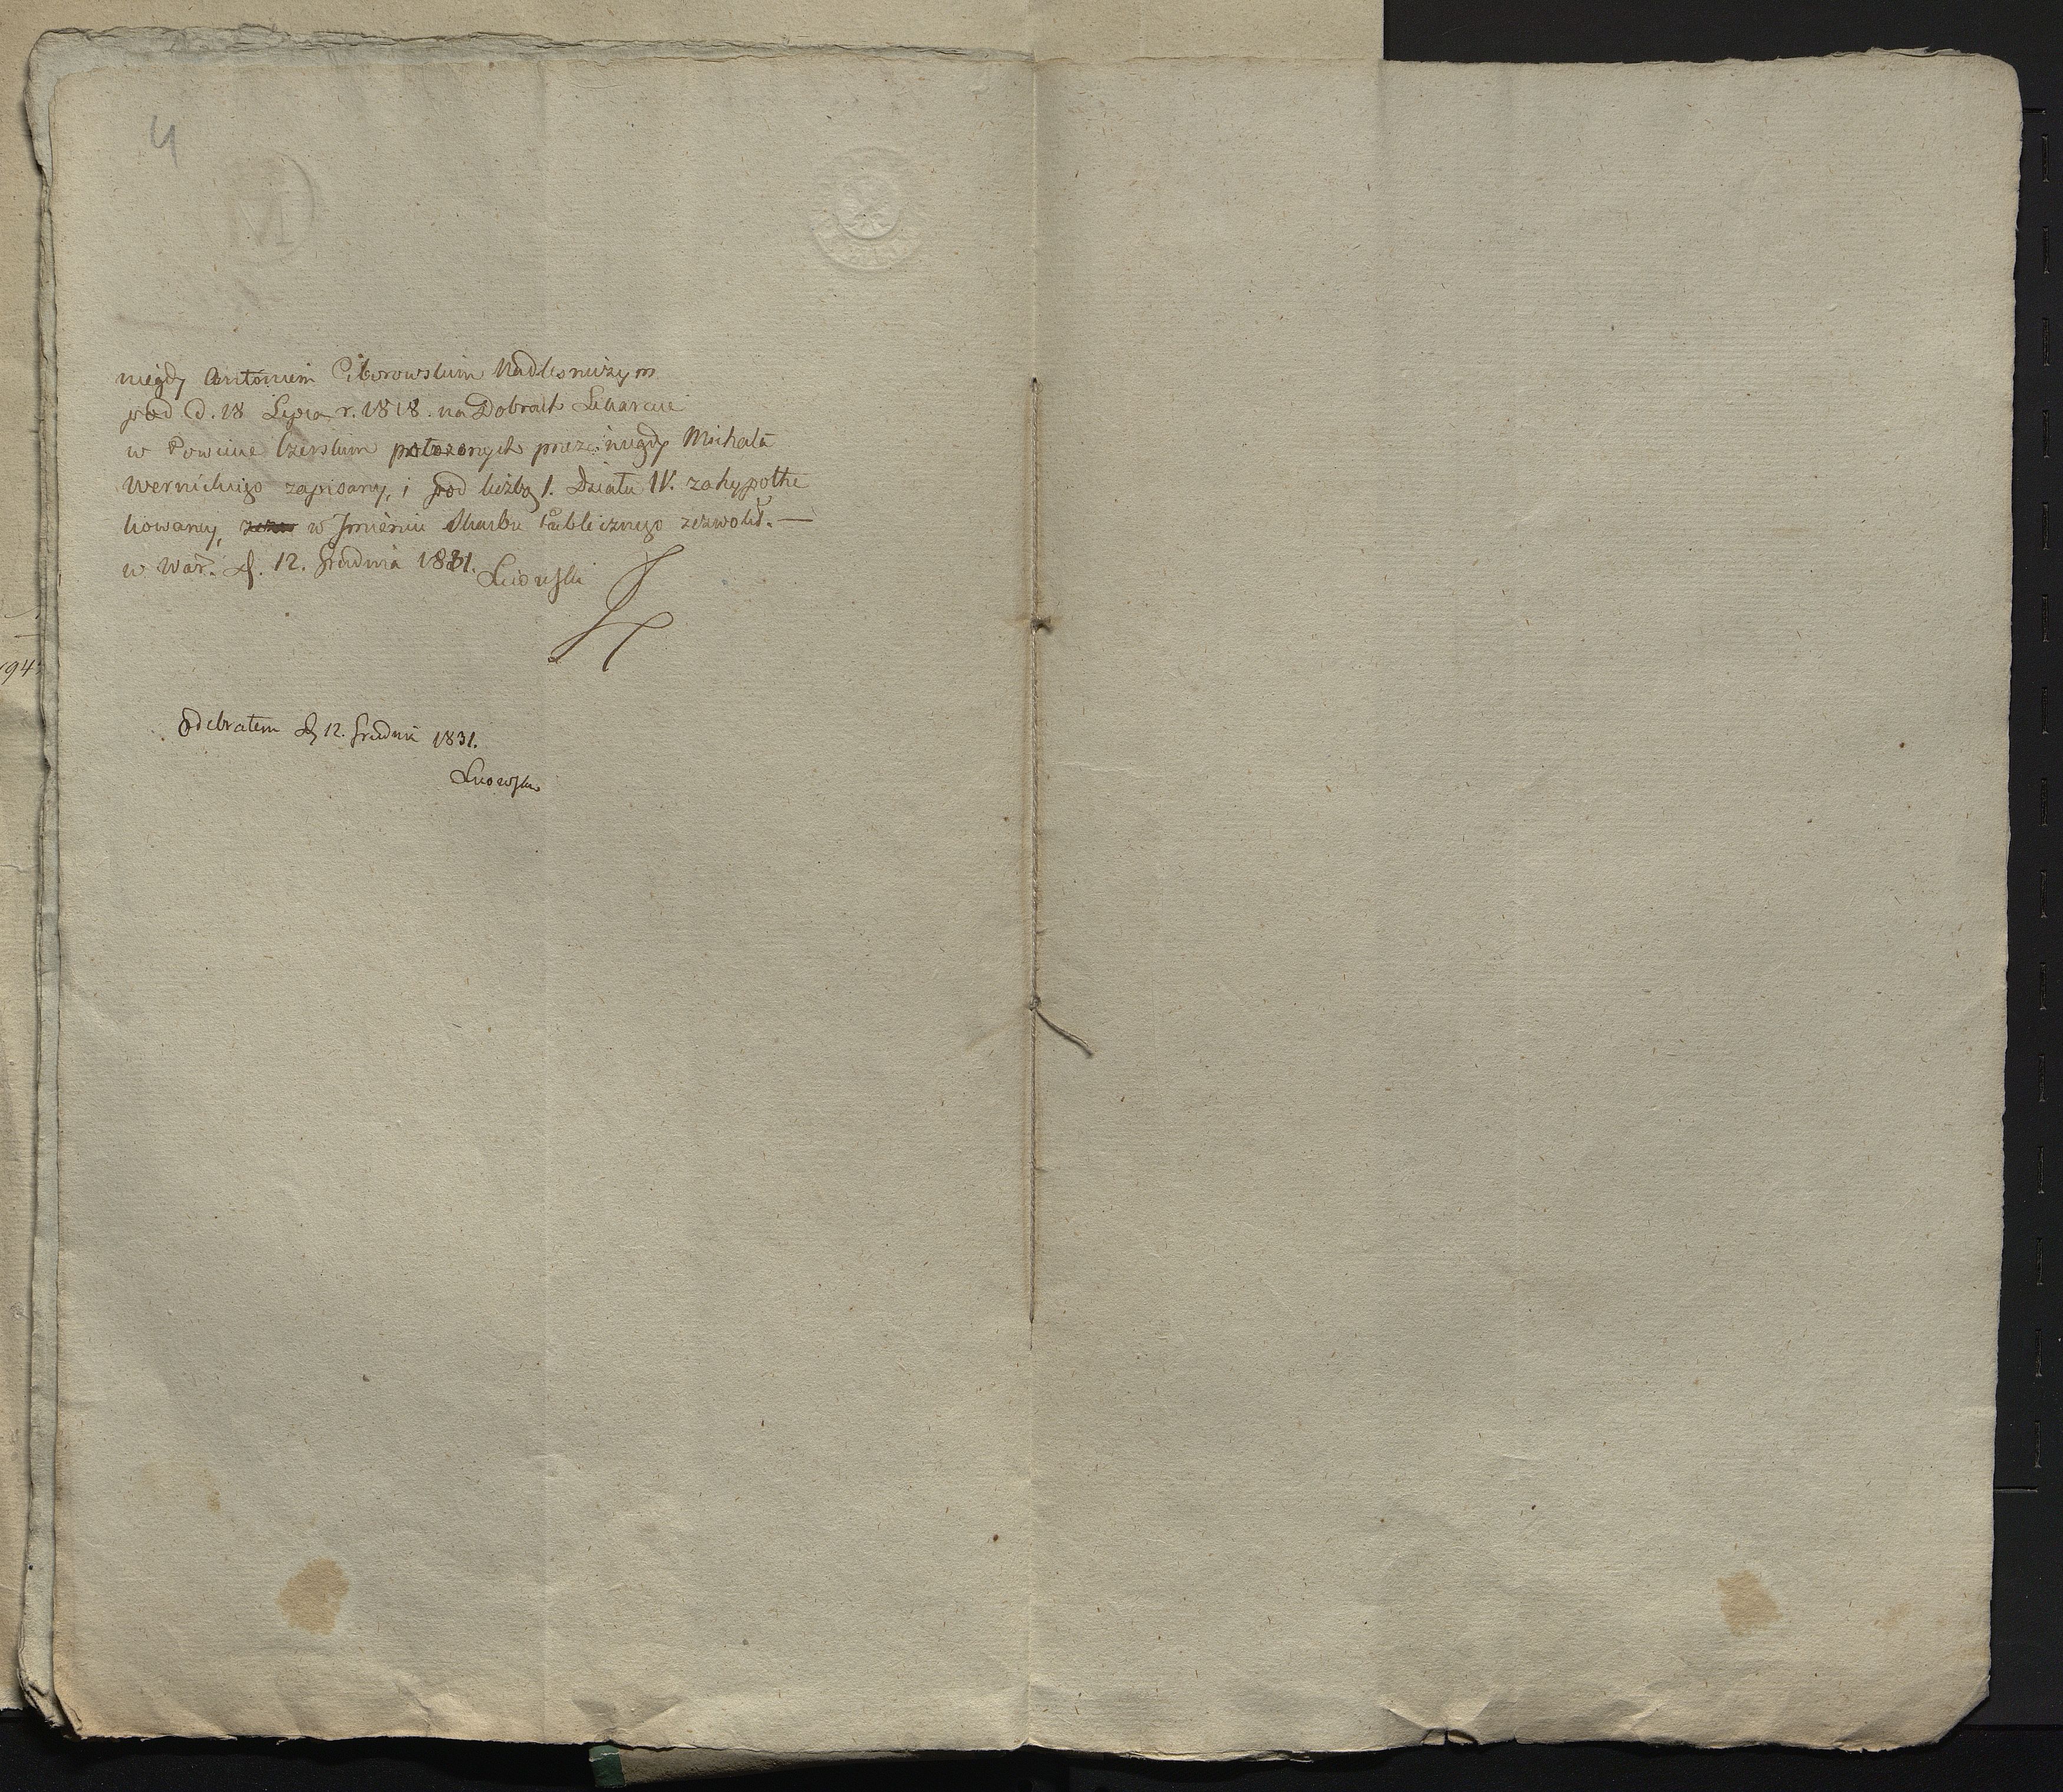 4
niegdy Antonim Ciborowskim Nadlesniczym
pod d. 18 Lipca r. 1818. na Dobrach
w Powiecie Czerskim położonych przez niegdy Michała
Wernickiego zapisany, i pod liczbą 1. Działu IV. zahypothe
kowany, w Imieniu Skarbu Publicznego zezwolił. —
w War. d. 12. Grudnia 1831.
Odebrałem d 12. Grudnia 1831.
194